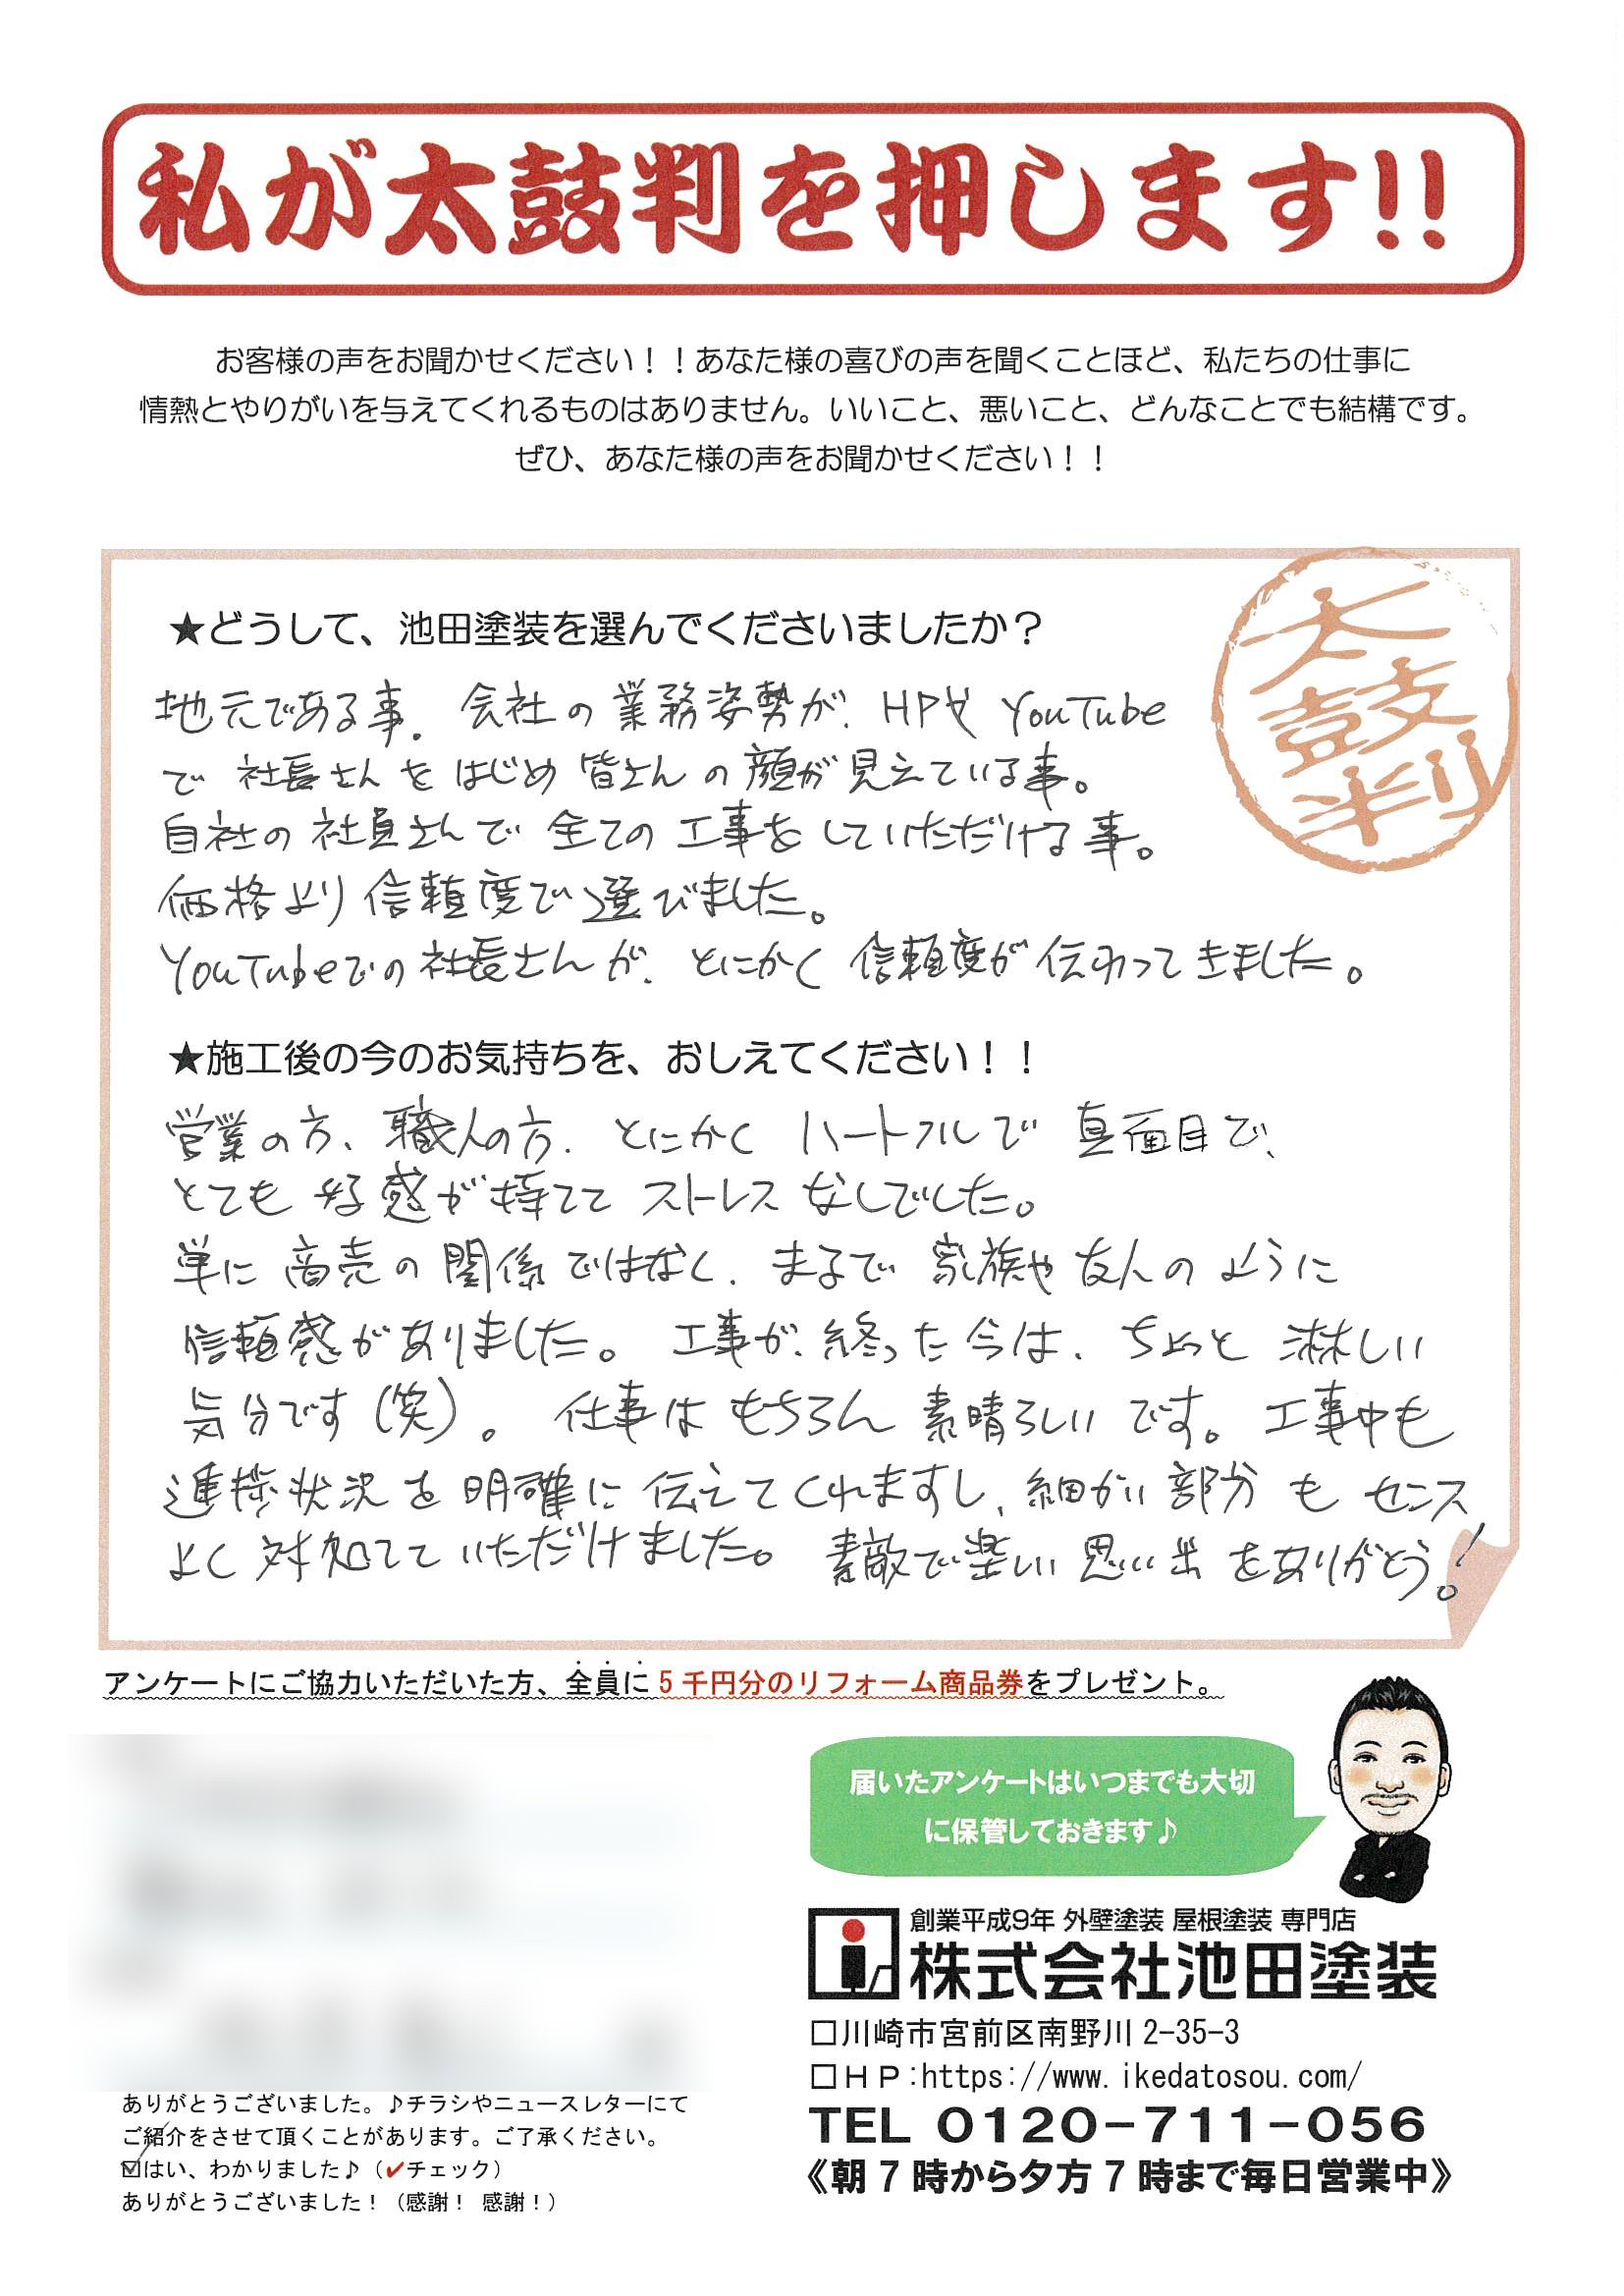 私が太鼓判を押します!!
お客様の声をお聞かせください！！あなた様の喜びの声を聞くことほど、私たちの仕事に
情熱とやりがいを与えてくれるものはありません。いいこと、悪いこと、どんなことでも結構です。
ぜひ、あなた様の声をお聞かせください！！
太鼓判
★どうして、池田塗装を選んでくださいましたか？
地元である事。会社の業務姿勢が、HPや YouTube
で 社長さんを はじめ 皆さんの顔が見えている事。
自社の社員さんで 全ての工事をしていただける事。
価格より信頼度で選びました。
YouTubeでの社長さんが、とにかく信頼度が伝わってきました。
★施工後の今のお気持ちを、おしえてください！！
営業の方、職人の方、とにかく ハートフルで 真面目で、
とても 好感が持てて ストレス なしでした。
単に 商売の 関係ではなく、まるで 家族や友人のように
信頼感がありました。工事が終った今は、ちょっと 淋しい
気分です(笑)。仕事は もちろん 素晴らしいです。工事中も
進捗状況を明確に伝えてくれますし、細かい部分も センス
よく 対処てていただけました。素敵で楽しい思い出をありがとう!
アンケートにご協力いただいた方、全員に5千円分のリフォーム商品券をプレゼント。
届いたアンケートはいつまでも大切
に保管しておきます♪
創業平成9年 外壁塗装 屋根塗装 専門店
株式会社池田塗装
□川崎市宮前区南野川 2-35-3
□ＨＰ:https://www.ikedatosou.com/
TEL 0120-711-056
《朝7時から夕方7時まで毎日営業中》
ありがとうございました。♪チラシやニュースレターにて
ご紹介をさせて頂くことがあります。ご了承ください。
☑はい、わかりました♪（✔チェック）
ありがとうございました！（感謝！ 感謝！）